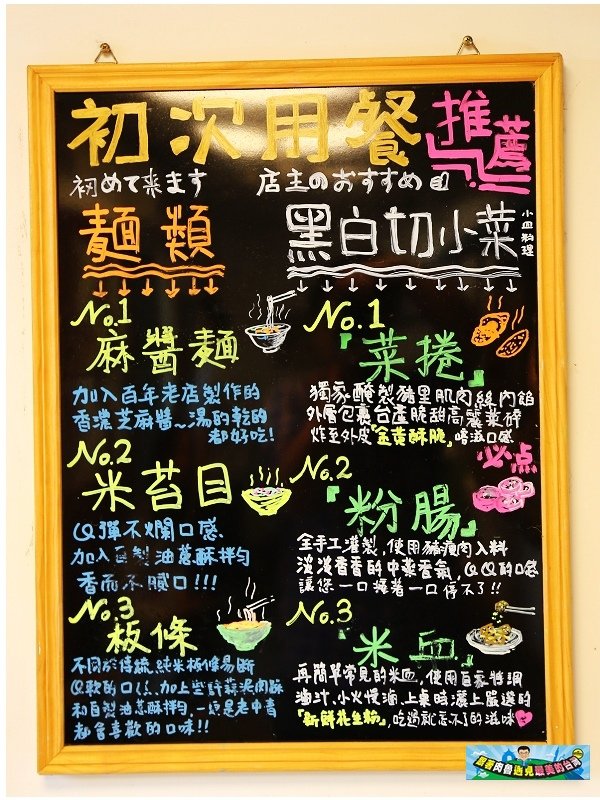 初次用餐
推薦
初めて来ます
店主のおすすめ
麵類
No.1
麻醬麵
加入百年老店製作的
香濃芝麻醬~湯的乾的
都好吃!
No.2
米苔目
QQ彈不爛口感
加入自製油蔥酥拌勻
香而不膩口!!!
No.3
板條
不同於傳統純米板條易斷
Q軟的口感、加上些許蒜泥肉酥
和自製油蔥酥拌勻、一
都會喜歡的口味!!
黑白切小菜
小皿料理
No.1
『菜捲』
獨家醃製豬里肌肉絲內餡
外層包裹台產脆甜高麗菜碎
炸至外皮『金黃酥脆』
口感
No.2
必点
『粉腸』
全手工灌製、使用豬瘦肉入料
淡淡香香的中藥香氣、QQ的口感
讓您一口接著一口停不了!!
No.3
『米血』
再簡單常見的米血、使用自家特調
滷汁、小火慢滷、上桌時灑上嚴選的
『新鮮花生粉』、吃過就忘不了的滋味
跟著肉魯遇見最美的台灣